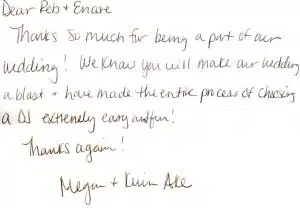 Dear Reb + Encore
Thanks so much for being a part of our
wedding! We know you will make our wedding
a blast + have made the entire process of choosing
a DJ extremely easy and fun!
Thanks again!
Megan + Kevin Ake